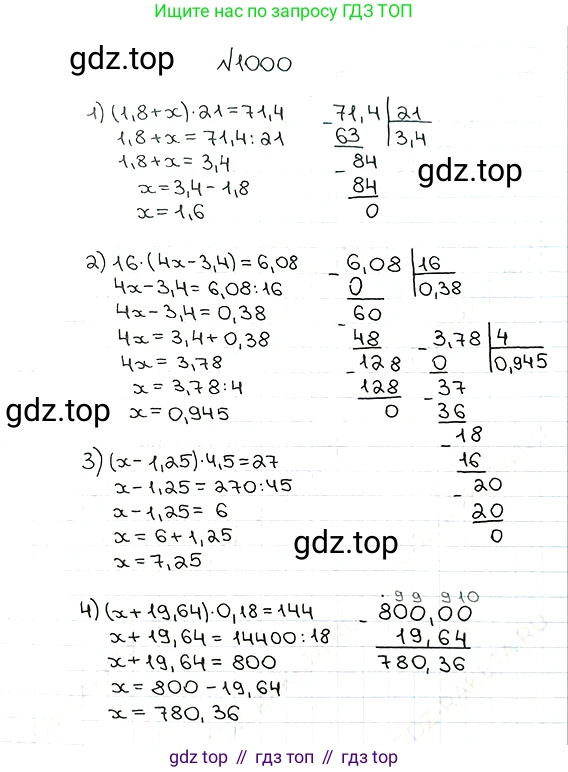 Ищите нас по запросу ГДЗ ТОП
gdz.top
№1000
1) (1,8+x)·21=71,4
1,8+x=71,4:21
1,8+x=3,4
x=3,4-1,8
x=1,6
-71,4 | 21
63 | 3,4
-84
84
0
gdz.top
2) 16·(4x-3,4)=6,08
4x-3,4=6,08:16
4x-3,4=0,38
4x=3,4+0,38
4x=3,78
x=3,78:4
x=0,945
-6,08 | 16
0 | 0,38
-60
48
-128
128
0
-3,78 | 4
0 | 0,945
-37
36
-18
16
-20
20
0
gdz.top
3) (x-1,25)·4,5=27
x-1,25=270:45
x-1,25=6
x=6+1,25
x=7,25
gdz.top
4) (x+19,64)·0,18=144
x+19,64=14400:18
x+19,64=800
x=800-19,64
x=780,36
· 9 9 9 10
-800,00
19,64
780,36
gdz.top // гдз топ // гдз.топ